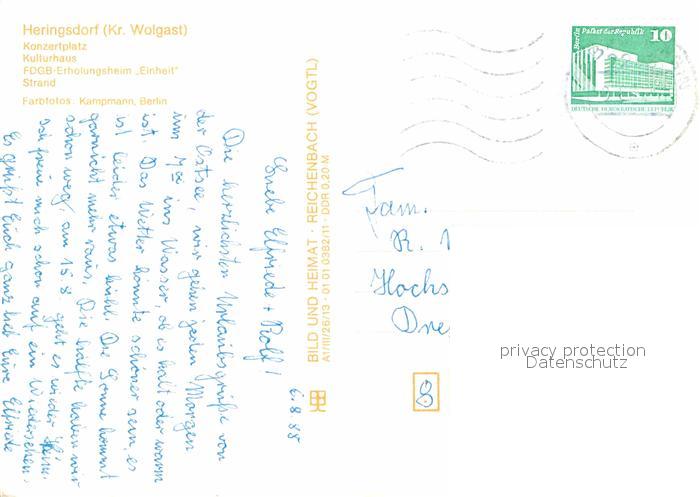 Heringsdorf (Kr. Wolgast)
Konzertplatz
Kulturhaus
FDGB-Erholungsheim „Einheit“
Strand
Farbfotos: Kampmann, Berlin
BILD UND HEIMAT · REICHENBACH (VOGTL)
A1/III/26/13 · 01 01 0382/11 · DDR 0,20 M
Berlin Palast der Republik
10
DEUTSCHE DEMOKRATISCHE REPUBLIK
6.8.85
Liebe Elfriede + Rolf!
Die herzlichsten Urlaubsgrüße von
der Ostsee, wir gehen jeden Morgen
um 7 ins Wasser, ob es kalt oder warm
ist. Das Wetter könnte schöner sein, es
ist leider etwas kühl. Die Sonne kommt
garnicht mehr raus. Die Hälfte haben wir
schon weg, am 15.8. geht es wieder heim.
freue mich schon auf ein Wiedersehen.
Es grüßt Euch ganz lieb Eure Elfriede
Fam.
R.
Hochs
Dre
8
privacy protection
Datenschutz